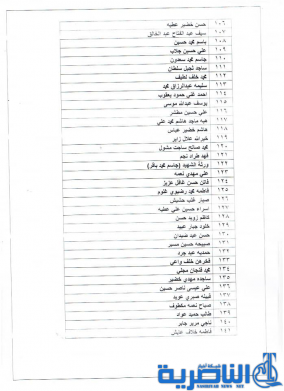 ١٠٦ حسن خضير عطيه
١٠٧ سيف عبد الفتاح عبد الخالق
١٠٨ باسم محمد حسين
١٠٩ علي حسين جلاب
١١٠ جاسم محمد سعدون
١١١ ساجد نجيل سلطان
١١٢ محمد خلف لطيف
١١٣ سليمه عبدالرزاق محمد
١١٤ احمد غني حمود يعقوب
١١٥ يوسف عبدالله موسى
١١٦ علي حسين مطشر
١١٧ هبه ماجد هاشم محمد علي
١١٨ هاشم خضير عباس
١١٩ خيرالله علال زاير
١٢٠ محمد صالح ساجت مشول
١٢١ فهد طراد نجم
١٢٢ ورثة الشهيد (جاسم محمد باقر)
١٢٣ علي مهدي نعمه
١٢٤ فاتن حسن غافل عزيز
١٢٥ فاطمه محمد رضيوي غلوم
١٢٦ صبار غلب حشيش
١٢٧ اسراء حسين علي عطيه
١٢٨ كاظم زويد حسن
١٢٩ خلود جبار عبيد
١٣٠ حسن عبد ضيدان
١٣١ صبيحه حسين مسير
١٣٢ حمديه عبد جرد
١٣٣ فخر خلف واعي
١٣٤ محمد فنجان مجلي
١٣٥ ساجده مهدي خضير
١٣٦ علي عيسى ناصر حسين
١٣٧ صبري عويد
١٣٨ صباح نعمه مكطوف
١٣٩ طالب حميد عواد
١٤٠ ناجي مرير جابر
١٤١ فاطمه خلاف عليش
شبكة اخبار
الناصرية